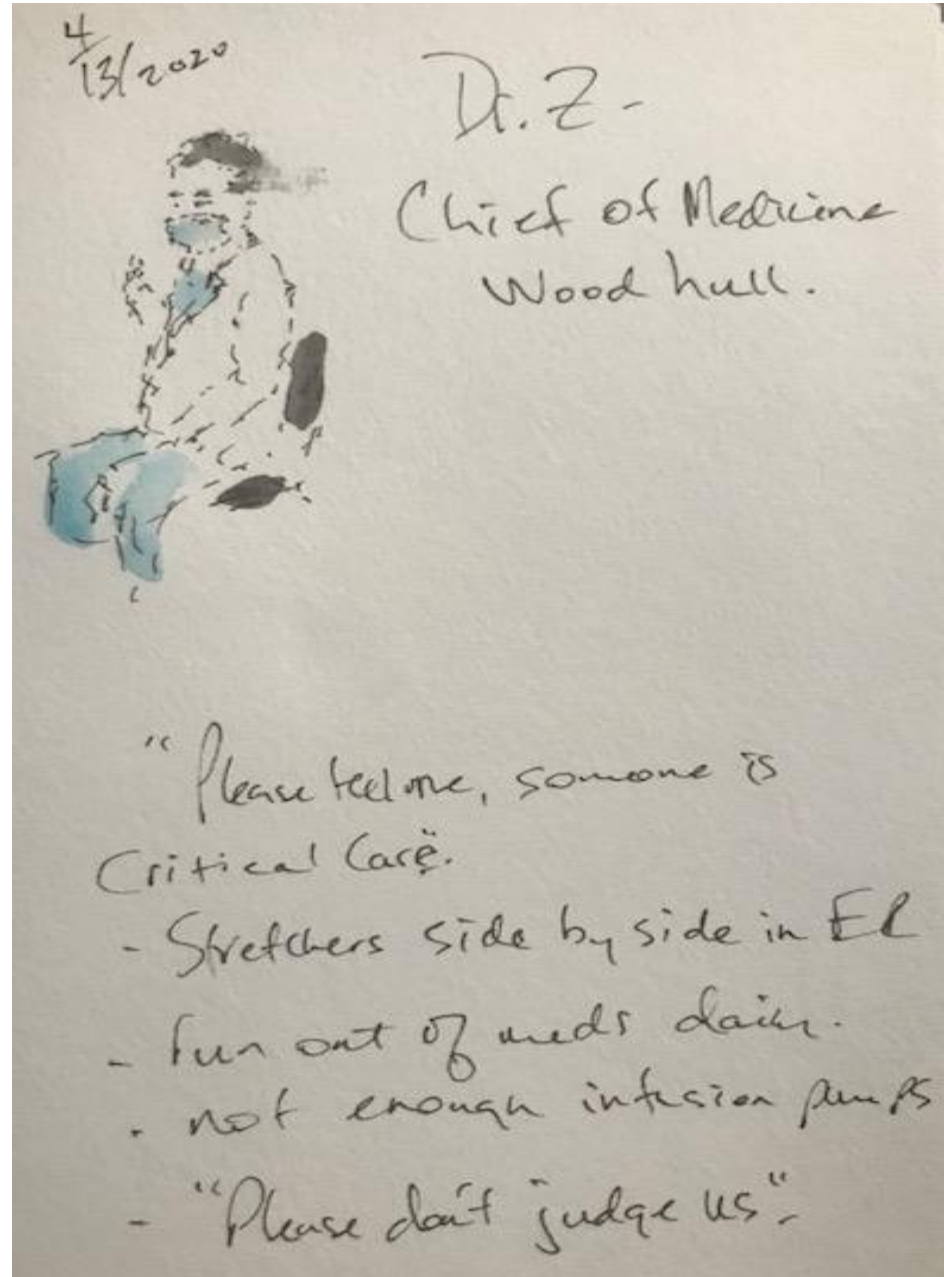 4/13/2020
Dr. Z -
Chief of Medicine
Woodhull.
"Please tell me, someone is
Critical Care".
- Stretchers side by side in ER
- run out of meds daily.
- not enough infusion pumps
- "Please don't judge us".